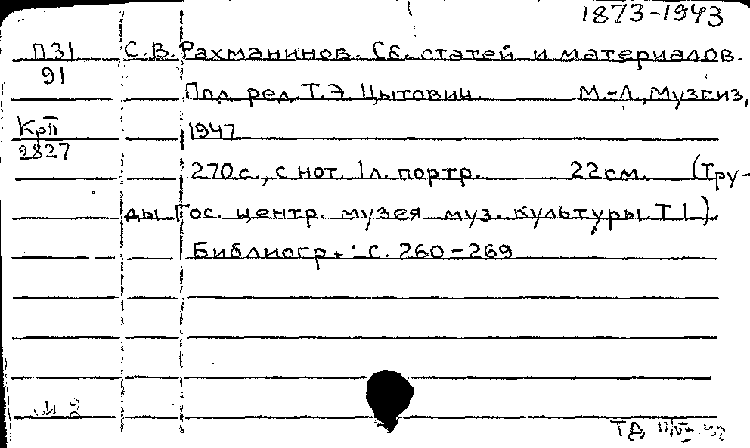 1873-1943
П31 С.В. Рахманинов. Сб. статей и материалов.
91 Под ред. Т.Э. Цытович. М.-Л., Музгиз,
КрП 1947
2827
270 с., с нот. 1 л. портр. 22 см. (Тру-
ды Гос. центр. музея муз. культуры Т 1)
Библиогр.: с. 260-269
ТД